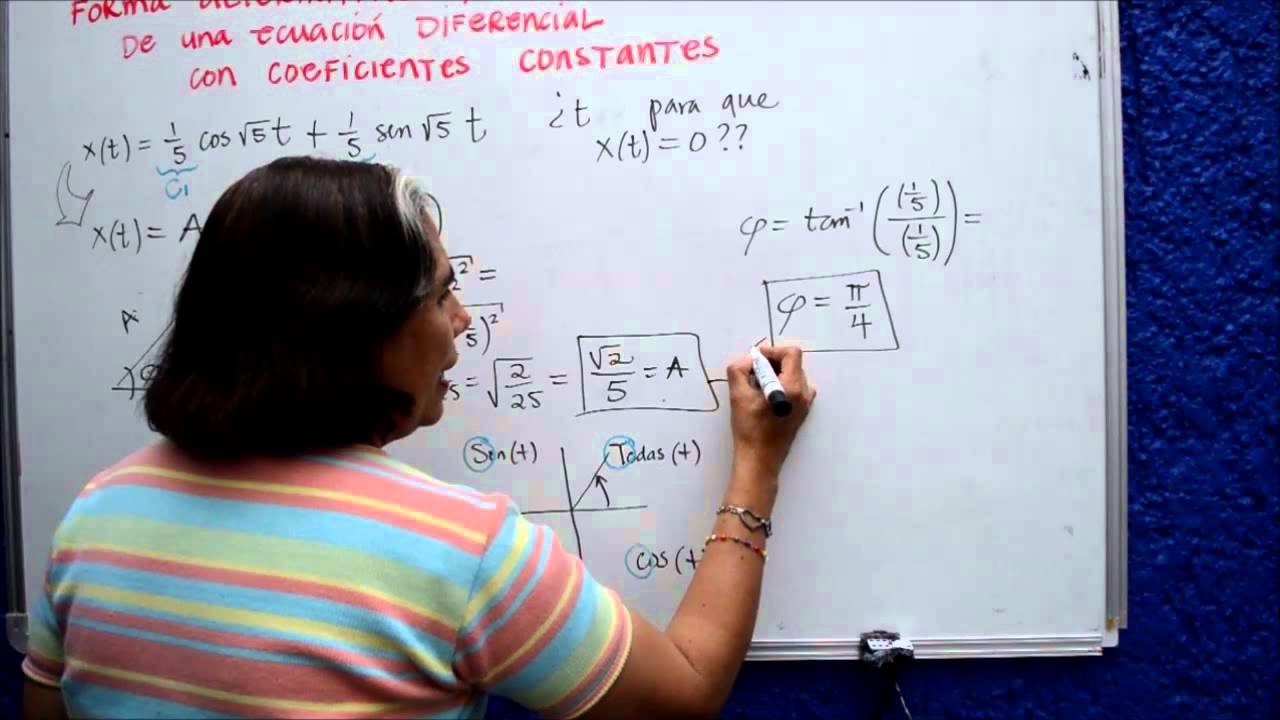 FORMA
DE UNA ECUACIÓN DIFERENCIAL
CON COEFICIENTES CONSTANTES
x(t) = 1/5 cos √5 t + 1/5 sen √5 t
C1
¿t para que
x(t) = 0 ??
x(t) = A )
φ = tan⁻¹ ((1/5)/(1/5)) =
φ = π/4
A
2² =
5)²
= √(2/25) = √2/5 = A
Sen (+) Todas (+)
Cos (+